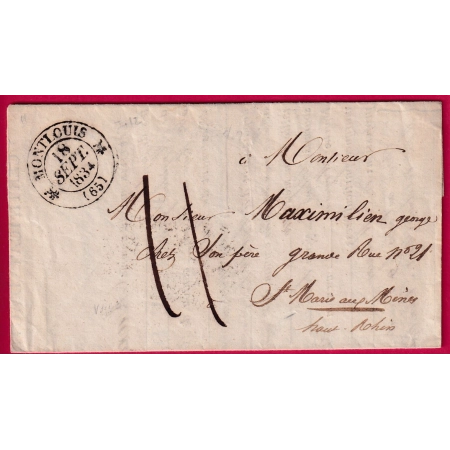 MONTLOUIS
18
SEPT.
1834
(65)
à Monsieur
Monsieur Maximilien george
chez son père grande Rue n° 21
St Marie aux Mines
haut-Rhin
11